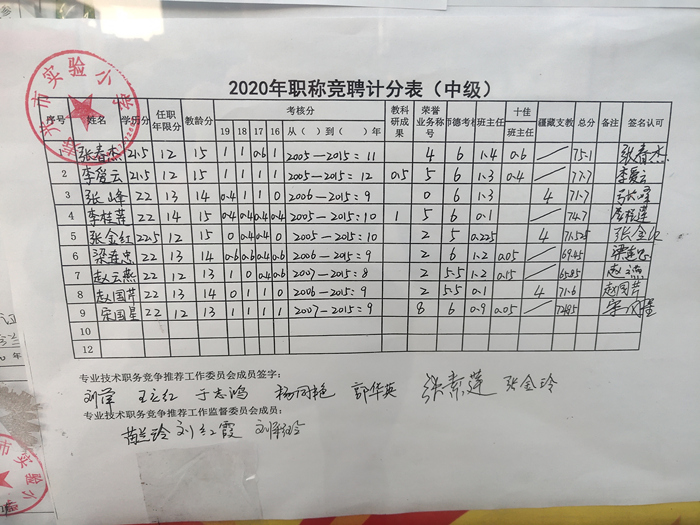 市实验小学
2020年职称竞聘计分表（中级）
序号 姓名 学历分 任职年限分 教龄分 考核分 教科研成果 荣誉业务称号 师德考核 班主任 十佳班主任 疆藏支教 总分 备注 签名认可
19 18 17 16 从（ ）到（ ）年
张春杰 21.5 12 15 1 1 0.6 1 2005—2015：11 4 6 1.4 0.6 75.1 张春杰
2 李爱云 21.5 12 15 1 1 1 1 2005—2015：12 0.5 5 6 1.3 0.4 77.7 李爱云
3 张峰 22 13 14 0.4 1 1 0 2006—2015：9 0 6 1.3 4 71.7 张峰
4 李桂莲 22 14 15 0.4 0.4 0.4 0.4 2005—2015：10 1 5 6 0.1 74.7 李桂莲
5 张金红 22.5 12 15 0 0.4 0.4 0.4 2005—2015：10 2 5 0.225 4 71.525 张金红
6 梁连忠 22 13 14 0.6 0.6 0.6 0.6 2006—2015：9 2 6 1.2 0.05 69.45 梁连忠
7 赵云燕 22 12 13 1 0 0.4 0.6 2007—2015：8 2 5.5 1.2 0.15 65.85 赵云燕
8 赵国芹 22 13 14 0 1 1 1 2006—2015：9 2 5.5 0.1 4 71.6 赵国芹
9 宋国星 22 12 13 1 1 1 0 2007—2015：9 8 6 0.9 0.05 宋国星
10
12
专业技术职务竞争推荐工作委员会成员签字：
王立红 于志鸿 杨同艳 郭华英 张素莲 张金玲
专业技术职务竞争推荐工作监督委员会成员：
苗兰玲 刘红霞